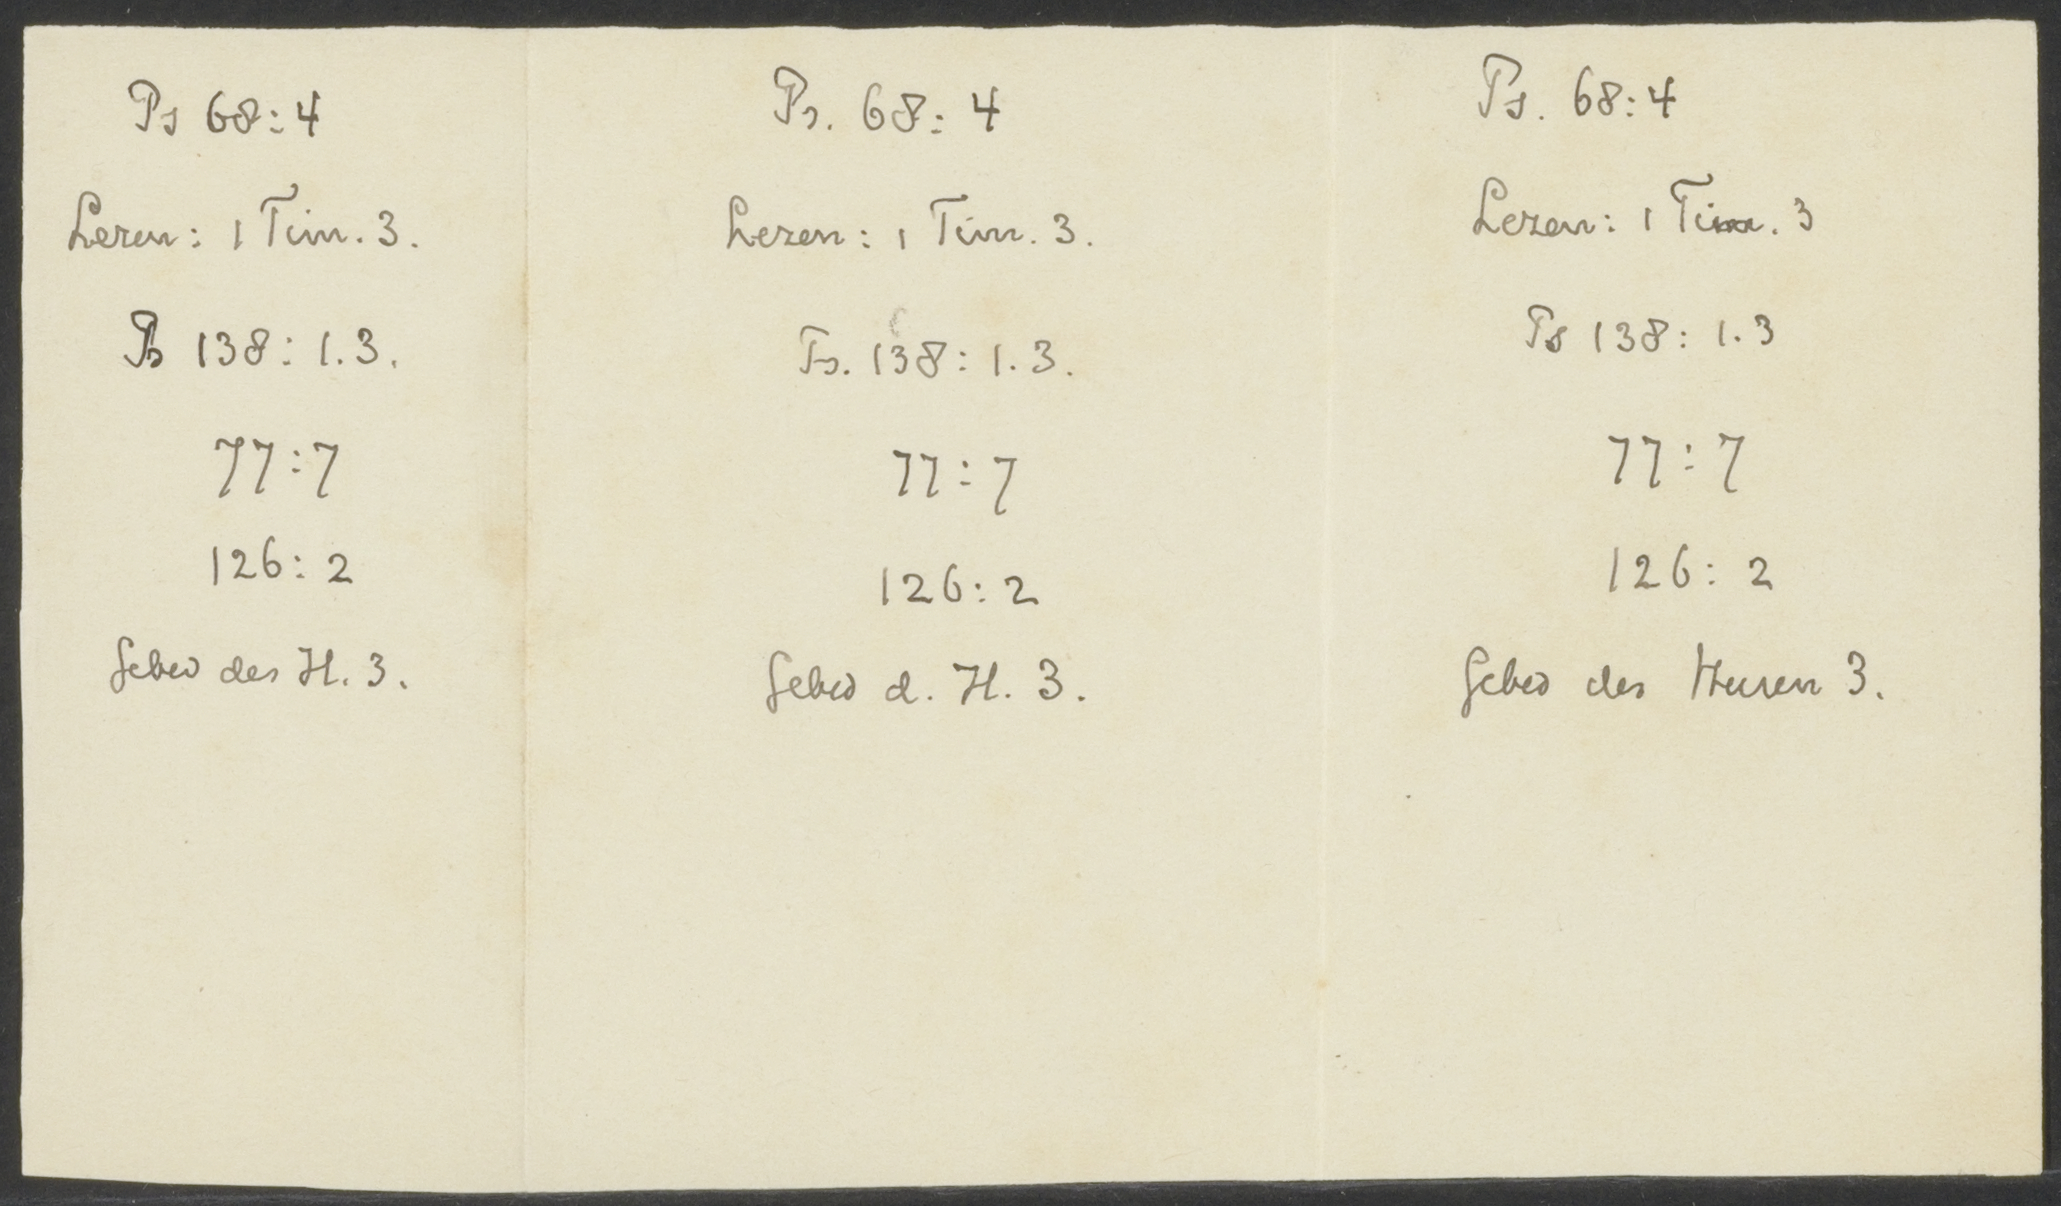 Ps 68:4
Lezen: 1 Tim. 3.
Ps 138: 1.3.
77:7
126:2
Gebed des H. 3.
Ps. 68:4
Lezen: 1 Tim. 3.
Ps. 138: 1.3.
77:7
126:2
Gebed d. H. 3.
Ps. 68:4
Lezen: 1 Tim. 3
Ps 138: 1.3
77:7
126: 2
Gebed des Heeren 3.